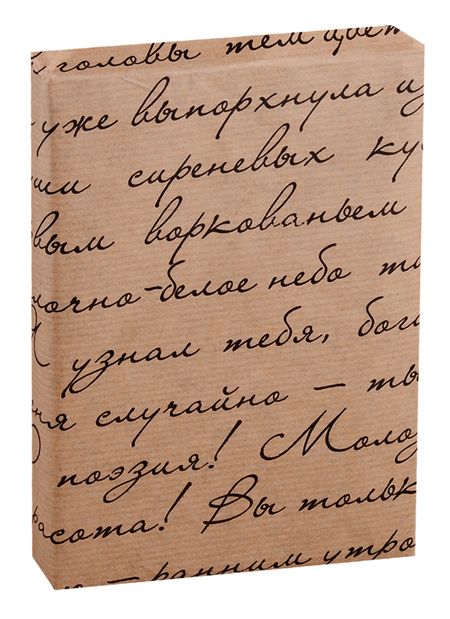 головы тем цвет
уже выпорхнула из
ши сиреневых ку
вым воркованьем
лочно-белое небо
узнал тебя, боги
ня случайно – ты
поэзия! Моло
расота! Вы тольк
– ранним утро